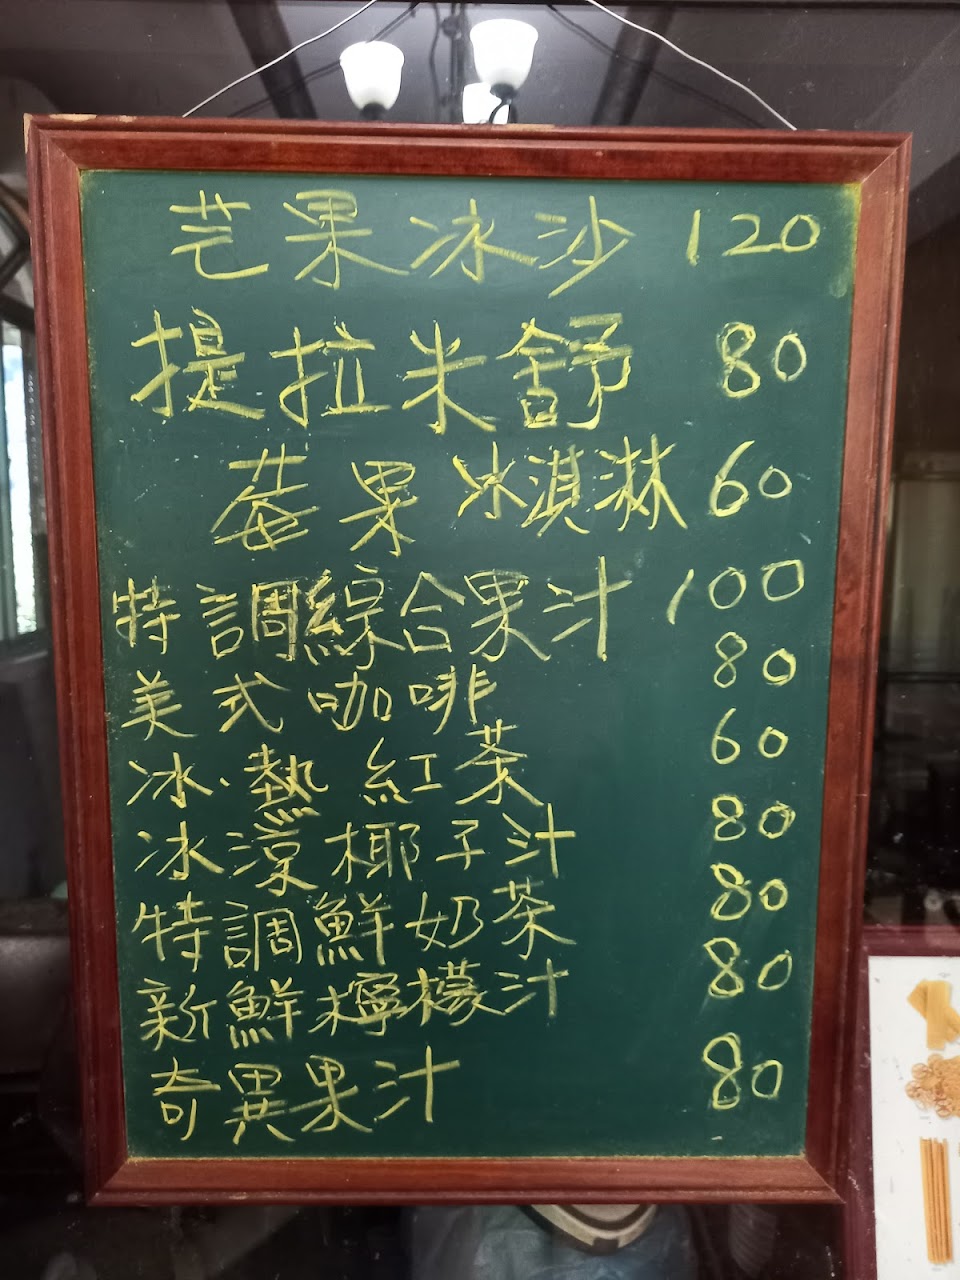 芒果冰沙 120
提拉米舒 80
莓果冰淇淋 60
特調綜合果汁 100
美式咖啡 80
冰.熱 紅茶 60
冰涼椰子汁 80
特調鮮奶茶 80
新鮮檸檬汁 80
奇異果汁 80